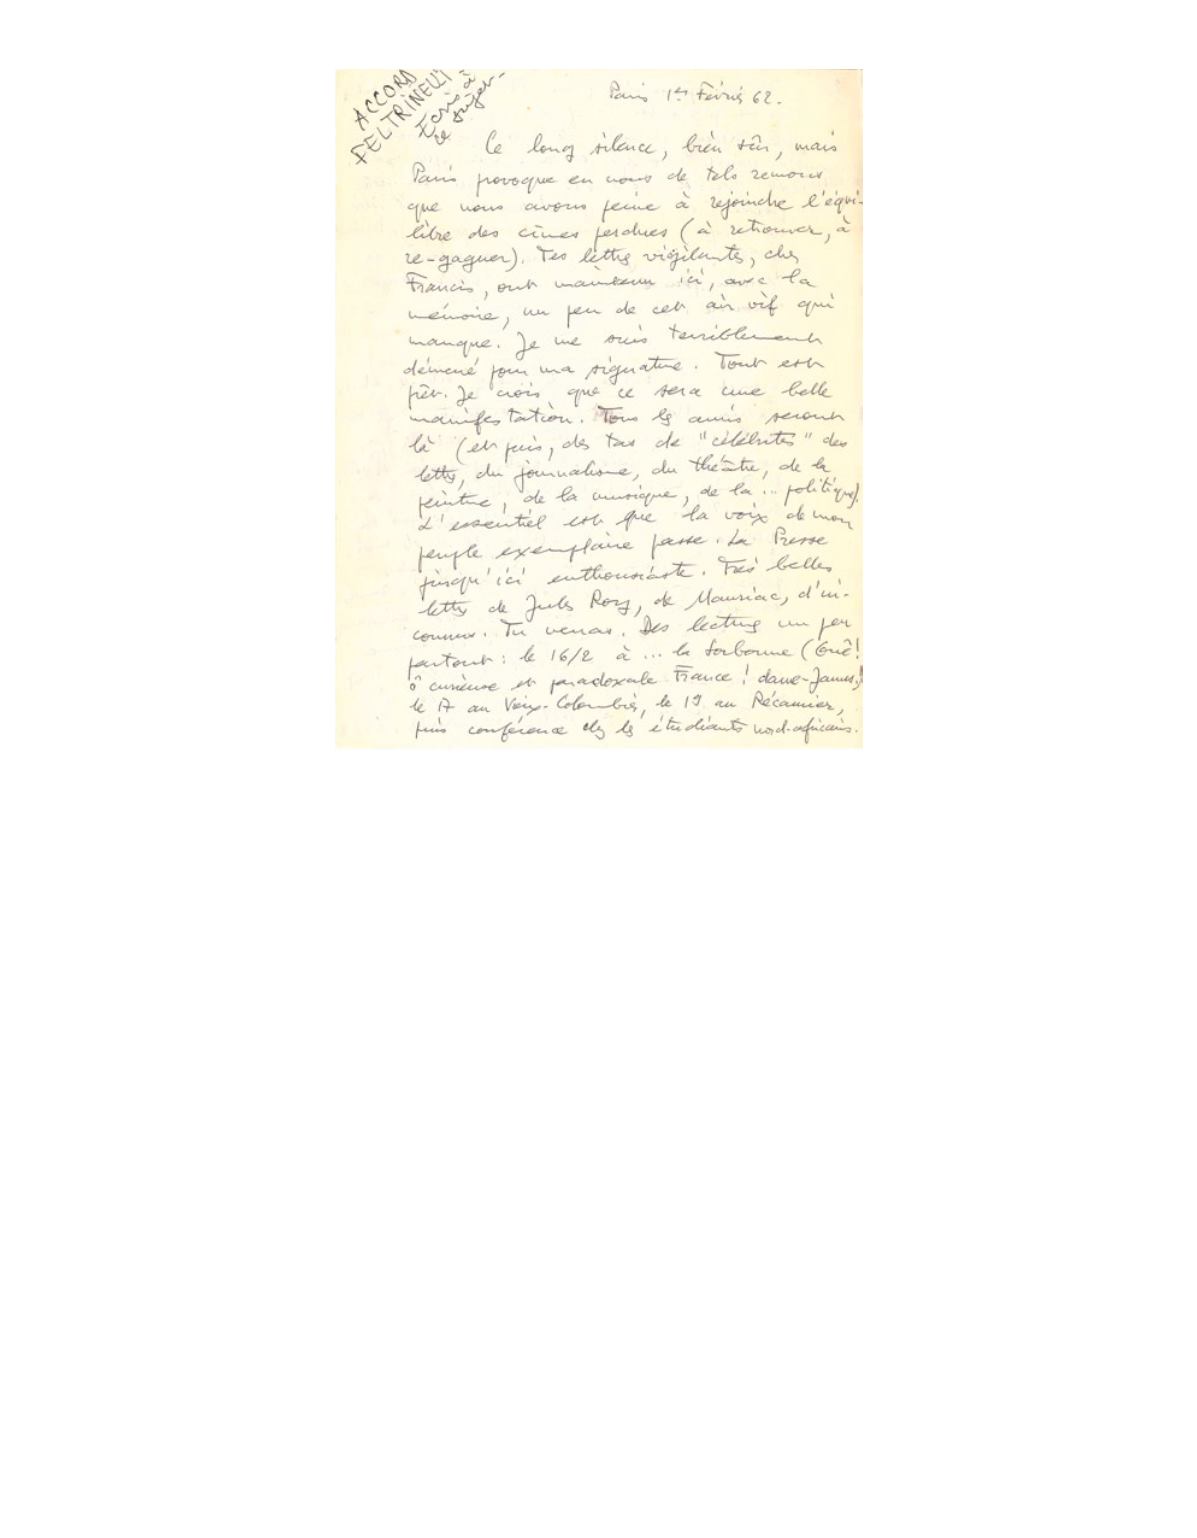 ACCORD
FELTRINELLI
Écris à
ce sujet-
Paris 1er Février 62.
Ce long silence, bien sûr, mais
Paris provoque en nous de tels remous
que nous avons peine à rejoindre l'équi-
libre des cimes perdues (à retrouver, à
re-gagner). Tes lettres vigilantes, cher
Francis, ont maintenu ici, avec la
mémoire, un peu de cet air vif qui
manque. Je me suis terriblement
démené pour ma signature. Tout est
prêt. Je crois que ce sera une belle
manifestation. Tous les amis seront
là (et puis, des tas de "célébrités" des
lettres, du journalisme, du théâtre, de la
peinture, de la musique, de la ... politique).
L'essentiel est que la voix de mon
peuple exemplaire passe. La Presse
jusqu'ici enthousiaste. Très belles
lettres de Jules Roy, de Mauriac, d'in-
connus. Tu verras. Des lectures un peu
partout : le 16/2 à ... la Sorbonne (
ô curieuse et paradoxale France ! dame-Janus,
le 17 au Vieux-Colombier, le 19 au Récamier,
puis conférence chez les étudiants nord-africains.